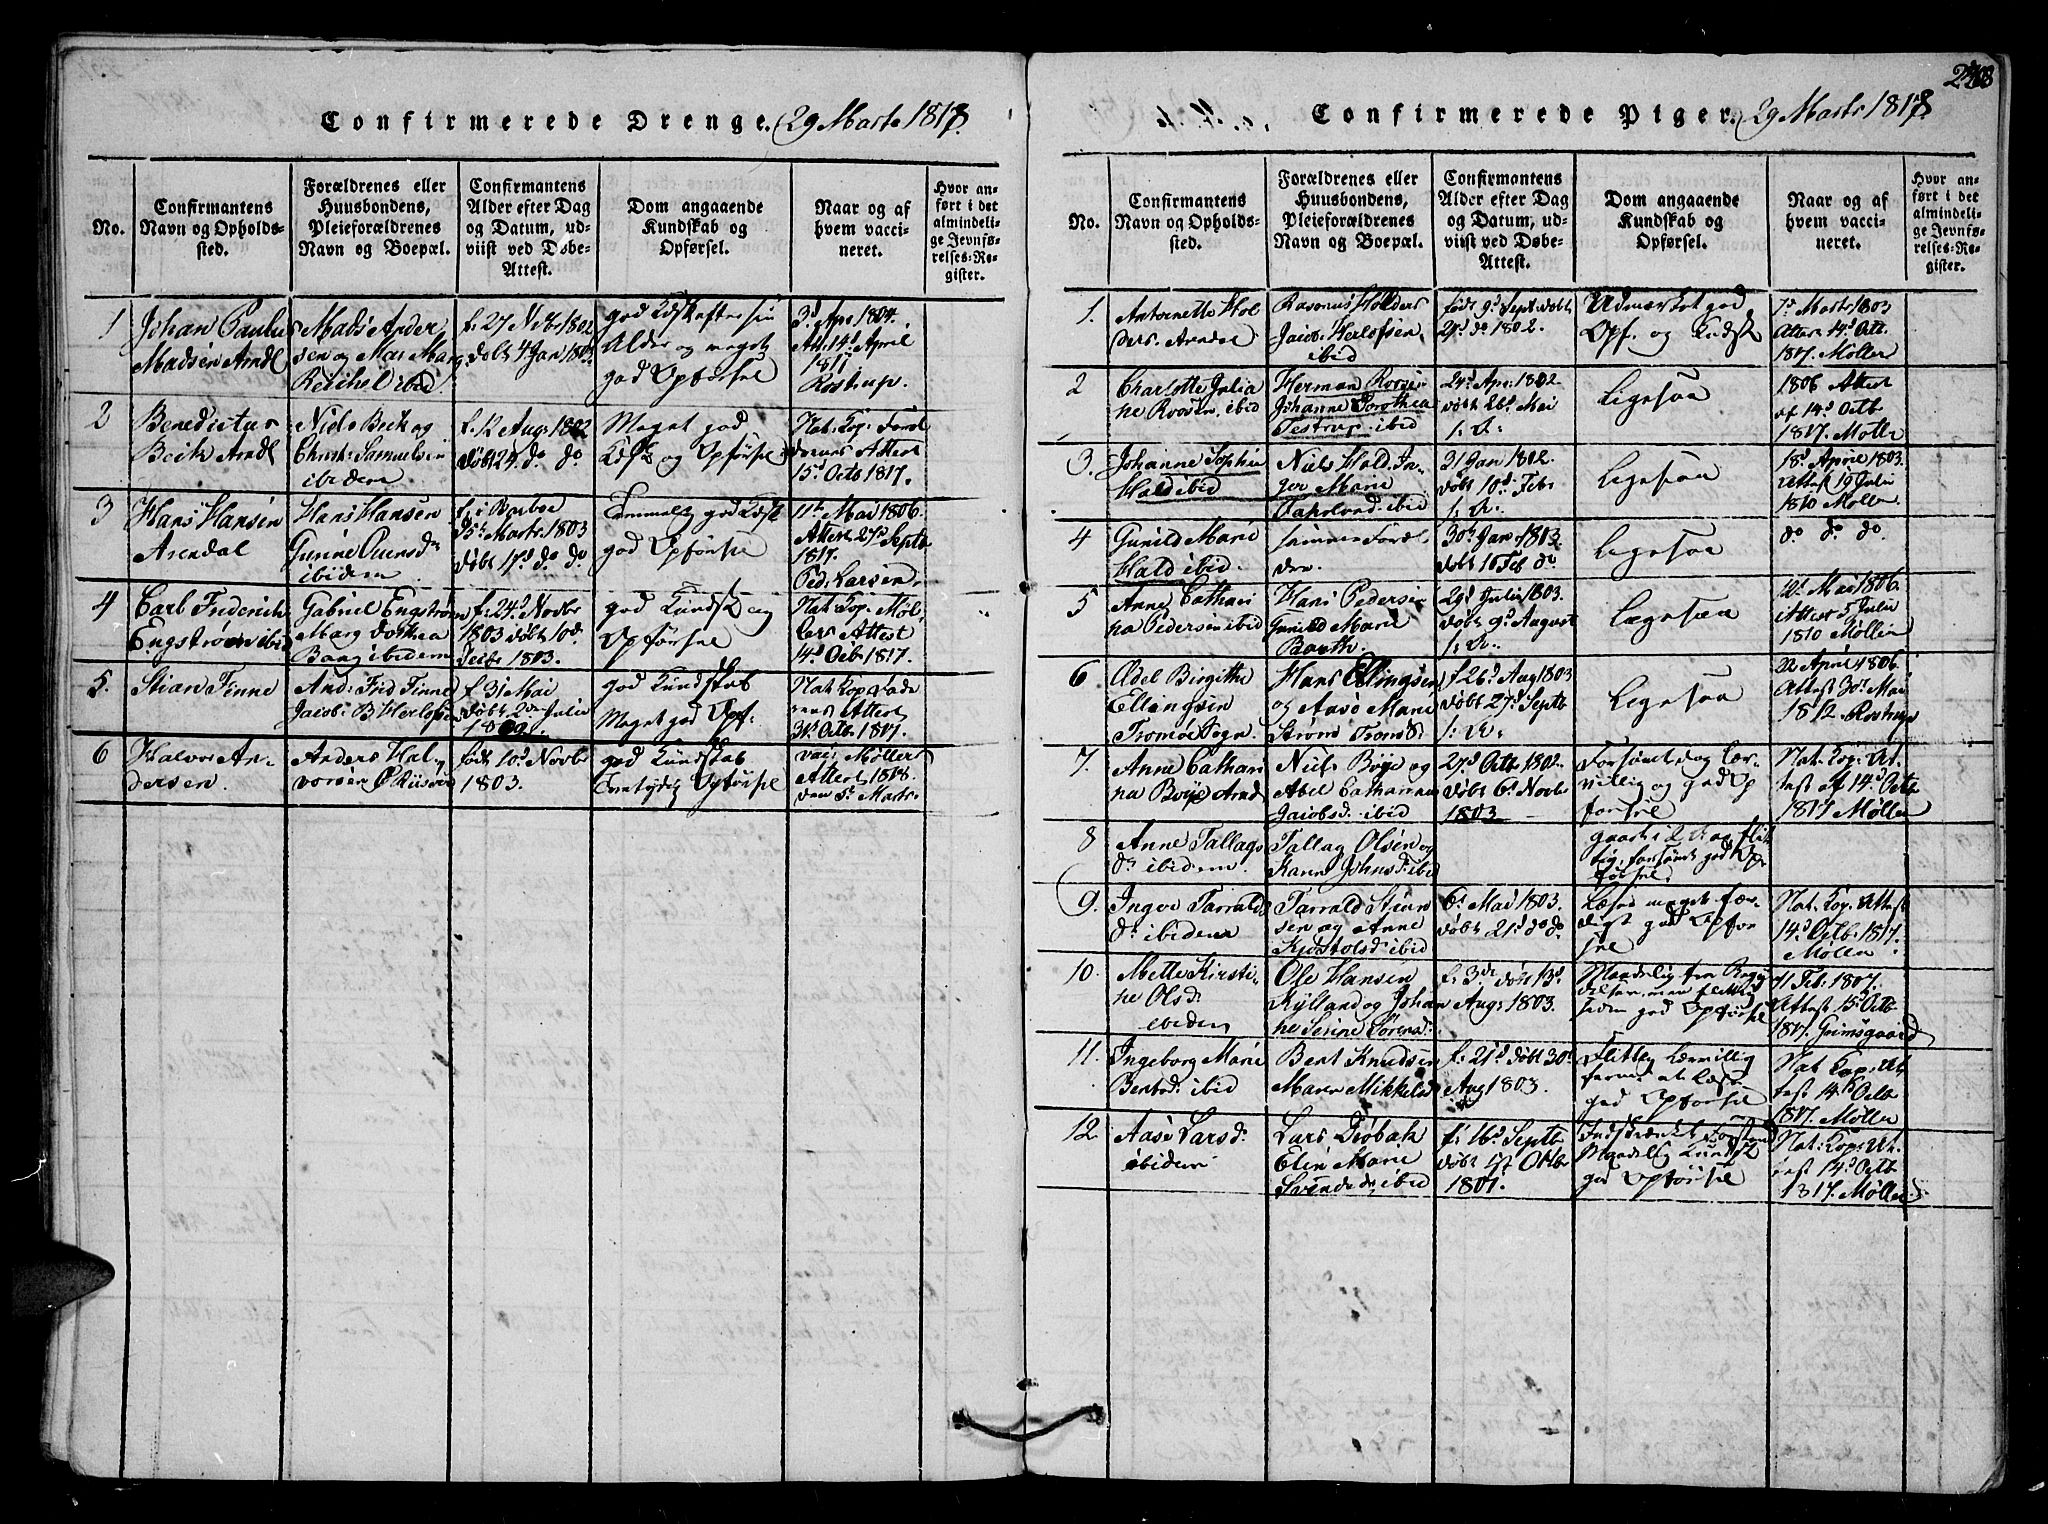 Confirmerede Drenge. 29 Marts 1818.
No.
Confirmantens
Navn og Opholds-
sted.
Forældrenes eller
Huusbondens,
Pleieforældrenes
Navn og Boepæl.
Confirmantens
Alder efter Dag
og Datum, ud-
viist ved Døbe-
Attest.
Dom angaaende
Kundskab og
Opførsel.
Naar og af
hvem vacci-
neret.
Hvor an-
ført i det
almindeli-
ge Jevnfø-
relses-Re-
gister.
1
Johan Paulus
Madsen Arndl
Mads Ander
sen og Mar Marg
Reichel ibid
f. 27 Nvbr 1802
døbt 4 Jan 1803.
god Kdsk efter sin
Alder og meget
god Opførsel
3d Apr 1804.
Att. 14d April
1817
Rostrup.
2
Benedictus
Beck Arndl
Niels Beck og
Christ: Samuels
ibidem
f. 12 Aug: 1802
døbt 24. do do
Meget god
Kdsk og Opførsel
Nat: Kop:
Attest
15d Octb 1817.
3
Hans Hansen
Arendal
Hans Hansen
Gurine
ibidem
f. i Barboe
Marts: 1803
døbt 17d do do
god Kdsk
god Opførsel
11te Mai 1806.
Attest 27d Septb
1817.
Ped: Larsen
4
Carl Friderich
Engstrøm ibid
Gabriel Engstrøm
Marg Dorthea
Bang ibidem
f: 24d Novbr
1803 døbt 10d.
1803.
god Kundsk og
Opførsel
Nat: Kop: Møl
lers Attest
14d Octb 1817.
5.
Stian Finne
And: Frid Finne
Jacob: B Herlofsen
f. 31 Mai
døbt 2den Julii
god Kundskab
Meget god Opf:
Nat: Kop:
Attest
31d Octb 1817.
6
Halvor An
dersen.
Anders Hal
vorsen
født 10d Novbr
1803.
god Kundskab
Opførsel
vac: Møllers
Attest 1818.
den 5d Marts.
Confirmerede Piger. 29 Marts 1818.
No.
Confirmantens
Navn og Opholds-
sted.
Forældrenes eller
Huusbondens,
Pleieforældrenes
Navn og Boepæl.
Confirmantens
Alder efter Dag
og Datum, ud-
viist ved Døbe-
Attest.
Dom angaaende
Kundskab og
Opførsel.
Naar og af
hvem vacci-
neret.
Hvor an-
ført i det
almindeli-
ge Jevnfø-
relses-Re-
gister.
1.
Antoinette Hol
ders Arndal
Rasmus Holders
Jacob: Herlofsen
ibid
født 9d Sept. døbt
29d do 1802.
Udmærket god
Opf. og Kundsk
7d Marts 1803
Attest 14d Oct.
1817. Møller
2
Charlotte Julia
ne Roosen ibid
Herman Roosen
Johanne Dorothea
Testrup ibid
24d Apr: 1802.
døbt 26d Mei
Ligesaa
1806 Attest
af 14d Octb
1817. Møller
3.
Johanne Sophie
Hald ibid
Niels Hald. In-
ger Marie
ibid
31 Jan 1802.
døbt 10d Feb
Ligesaa
18d April 1803.
Attest 19 Julii
1810 Møller
4
Gunild Marie
Hald ibid.
samme Foræl
dre.
30d Jan 1803
døbt 10 Feb do
Ligesaa
do do do.
5
Anne Cathari
na Pedersen ibid
Hans Pedersen
Gunild Marie
Barth.
29d Julii 1803.
døbt 9d August
Ligesaa
12d Mai 1806.
Attest 5 Julii
1810 Møller
6
Ædel Birgithe
Ellingsen
Tromøe Segn.
Hans Ellingsen
og Aase Marie
Strøm
f 26d Aug 1803
døbt 27d Septb
Ligesaa
22 April 1806.
Attest 30d Mai
1812. Rostrup
7.
Anne Cathari
na Boye Arndl
Niels Boye og
Abel Catharina
Jacobsd. ibid
27d Octb 1802.
døbt 6d Novbr
1803
Forsømt og lær
villig og god Op
førsel
Nat: Kop: At
test af 14d Octb
1817 Møller
8
Anne Tallags
dr ibidem.
Tallag Olsen og
Karen Johnsd: ibid
gaaet i 2 Aar flit
tig, forsømt god Op
førsel.
9.
Ingeb Tarralds
dr ibidem
Tarrald
sen og Anne
Kjøstolsd: ibid
6d Mai 1803.
døbt 21d do do
Læser meget fær
digt god Opfør
sel
Nat: Kop: Attest
14d Octb: 1817.
Møller
10
Mette Kirsti-
ne Olsd:
ibidem
Ole Hansen
Kylland og Johan
ne Serine Sørensd:
f. 3de døbt 13d
Aug: 1803.
god Opførsel
11 Feb: 1807.
Attest 15d Octb
1817. Grimsgaard
11.
Ingeborg Marie
Bentsd: ibid
Bent Knudsen
Maren Mikkelsd
f: 21d døbt 30d
Aug 1803.
Flittig lærvillig
at læse
god Opførsel
Nat: Kop: At
test 14d Octb
1817. Møller
12
Aase Larsd:
ibidem
Lars Drøbak
Elen Marie
Svendsdr ibid
f: 16d Septb
døbt 17 Octbr
1801.
Indskrænket Forstand
Maadelig Kundsk
god Opførsel
Nat: Kop: At.
test 14d Octb
1817. Møller.